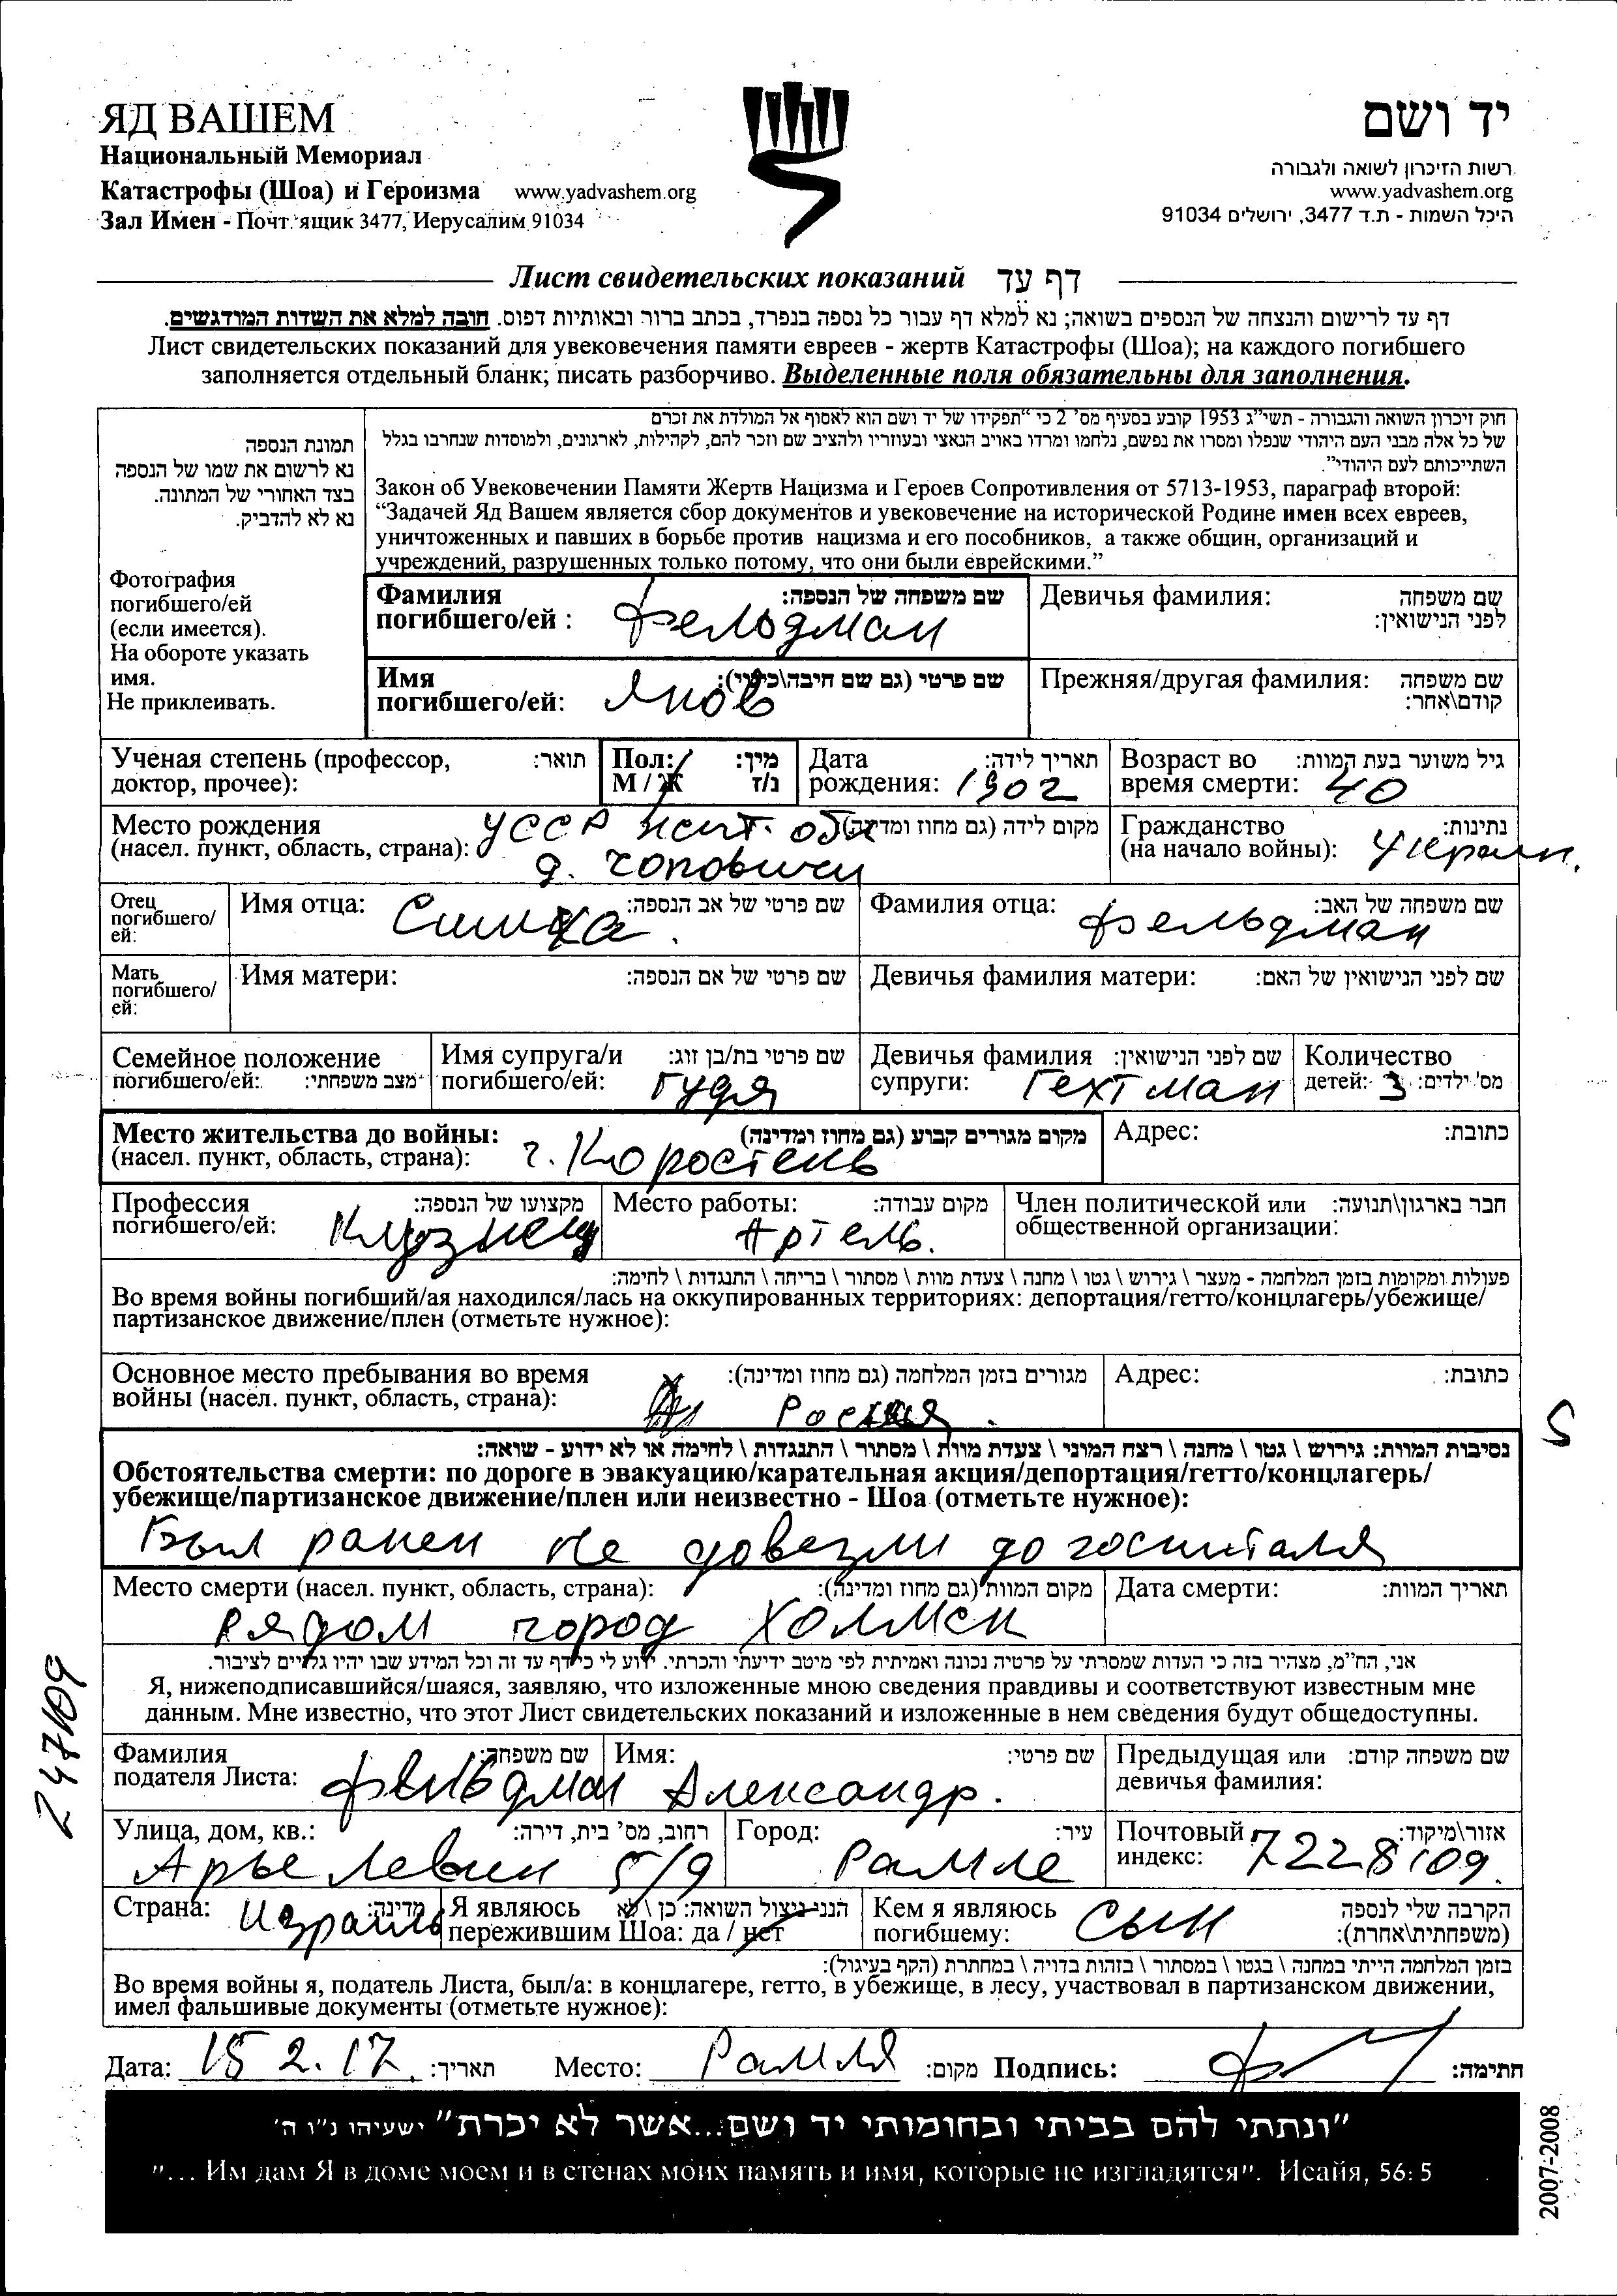 ЯД ВАШЕМ
Национальный Мемориал
Катастрофы (Шоа) и Героизма www.yadvashem.org
Зал Имен - Почт. ящик 3477, Иерусалим 91034
יד ושם
רשות הזיכרון לשואה ולגבורה
www.yadvashem.org
היכל השמות - ת.ד 3477, ירושלים 91034
Лист свидетельских показаний דף עד
דף עד לרישום והנצחה של הנספים בשואה; נא למלא דף עבור כל נספה בנפרד, בכתב ברור ובאותיות דפוס. חובה למלא את השדות המודגשים.
Лист свидетельских показаний для увековечения памяти евреев - жертв Катастрофы (Шоа); на каждого погибшего
заполняется отдельный бланк; писать разборчиво. Выделенные поля обязательны для заполнения.
תמונת הנספה
נא לרשום את שמו של הנספה
בצד האחורי של התמונה.
נא לא להדביק.
Фотография
погибшего/ей
(если имеется).
На обороте указать
имя.
Не приклеивать.
חוק זיכרון השואה והגבורה - תשי"ג 1953 קובע בסעיף מס' 2 כי "תפקידו של יד ושם הוא לאסוף אל המולדת את זכרם
של כל אלה מבני העם היהודי שנפלו ומסרו את נפשם, נלחמו ומרדו באויב הנאצי ובעוזריו ולהציב שם וזכר להם, לקהילות, לארגונים, ולמוסדות שנחרבו בגלל
השתייכותם לעם היהודי".
Закон об Увековечении Памяти Жертв Нацизма и Героев Сопротивления от 5713-1953, параграф второй:
“Задачей Яд Вашем является сбор документов и увековечение на исторической Родине имен всех евреев,
уничтоженных и павших в борьбе против нацизма и его пособников, а также общин, организаций и
учреждений, разрушенных только потому, что они были еврейскими.”
Фамилия שם משפחה של הנספה:
погибшего/ей : Фельдман
Девичья фамилия: שם משפחה
לפני הנישואין:
Имя שם פרטי (גם שם חיבה\כינוי):
погибшего/ей: Яков
Прежняя/другая фамилия: שם משפחה
קודם\אחר:
Ученая степень (профессор, תואר:
доктор, прочее):
Пол: מין:
М / Ж ז/נ
Дата תאריך לידה:
рождения: 1902
Возраст во גיל משוער בעת המוות:
время смерти: 40
Место рождения УССР жит. обл מקום לידה (גם מחוז ומדינה):
(насел. пункт, область, страна): д. Чоповичи
Гражданство נתינות:
(на начало войны): Украин.
Отец
погибшего/
ей:
Имя отца: Симха. שם פרטי של אב הנספה:
Фамилия отца: Фельдман שם משפחה של האב:
Мать
погибшего/
ей:
Имя матери: שם פרטי של אם הנספה:
Девичья фамилия матери: שם לפני הנישואין של האם:
Семейное положение
погибшего/ей: מצב משפחתי:
Имя супруга/и שם פרטי בת/בן זוג:
погибшего/ей: Гудя
Девичья фамилия שם לפני הנישואין:
супруги: Гехтман
Количество
детей: 3 מס' ילדים:
Место жительства до войны: מקום מגורים קבוע (גם מחוז ומדינה)
(насел. пункт, область, страна): г. Коростень
Адрес: כתובת:
Профессия מקצועו של הנספה:
погибшего/ей: Кузнец
Место работы: מקום עבודה:
Артель.
Член политической или חבר בארגון\תנועה:
общественной организации:
פעולות ומקומות בזמן המלחמה - מעצר \ גירוש \ גטו \ מחנה \ צעדת מוות \ מסתור \ בריחה \ התנגדות \ לחימה:
Во время войны погибший/ая находился/лась на оккупированных территориях: депортация/гетто/концлагерь/убежище/
партизанское движение/плен (отметьте нужное):
Основное место пребывания во время מגורים בזמן המלחמה (גם מחוז ומדינה):
войны (насел. пункт, область, страна): Россия.
Адрес: כתובת:
נסיבות המוות: גירוש \ גטו \ מחנה \ רצח המוני \ צעדת מוות \ מסתור \ התנגדות \ לחימה או לא ידוע - שואה:
Обстоятельства смерти: по дороге в эвакуацию/карательная акция/депортация/гетто/концлагерь/
убежище/партизанское движение/плен или неизвестно - Шоа (отметьте нужное):
Был ранен не довезли до госпиталя
Место смерти (насел. пункт, область, страна): מקום המוות (גם מחוז ומדינה):
рядом город Холмск
Дата смерти: תאריך המוות:
אני, הח"מ, מצהיר בזה כי העדות שמסרתי על פרטיה נכונה ואמיתית לפי מיטב ידיעתי והכרתי. ידוע לי כי דף עד זה וכל המידע שבו יהיו גלויים לציבור.
Я, нижеподписавшийся/шаяся, заявляю, что изложенные мною сведения правдивы и соответствуют известным мне
данным. Мне известно, что этот Лист свидетельских показаний и изложенные в нем сведения будут общедоступны.
Фамилия שם משפחה:
подателя Листа: Фельдман
Имя: שם פרטי:
Александр.
Предыдущая или שם משפחה קודם:
девичья фамилия:
Улица, дом, кв.: רחוב, מס' בית, דירה:
Арье Левин 5/9
Город: עיר:
Рамле
Почтовый אזור\מיקוד:
индекс: 7228109
Страна: Израиль מדינה:
Я являюсь הנני ניצול השואה: כן \ לא
пережившим Шоа: да / нет
Кем я являюсь הקרבה שלי לנספה
погибшему: сын (משפחתית\אחרת):
בזמן המלחמה הייתי במחנה \ בגטו \ במסתור \ בזהות בדויה \ במחתרת (הקף בעיגול):
Во время войны я, податель Листа, был/а: в концлагере, гетто, в убежище, в лесу, участвовал в партизанском движении,
имел фальшивые документы (отметьте нужное):
Дата: 15 2.17 תאריך: Место: Рамля מקום: Подпись: חתימה:
"ונתתי להם בביתי ובחומותי יד ושם...אשר לא יכרת" ישעיהו נ"ו ה'
"... Им дам Я в доме моем и в стенах моих память и имя, которые не изгладятся". Исайя, 56: 5
247109
2007-2008